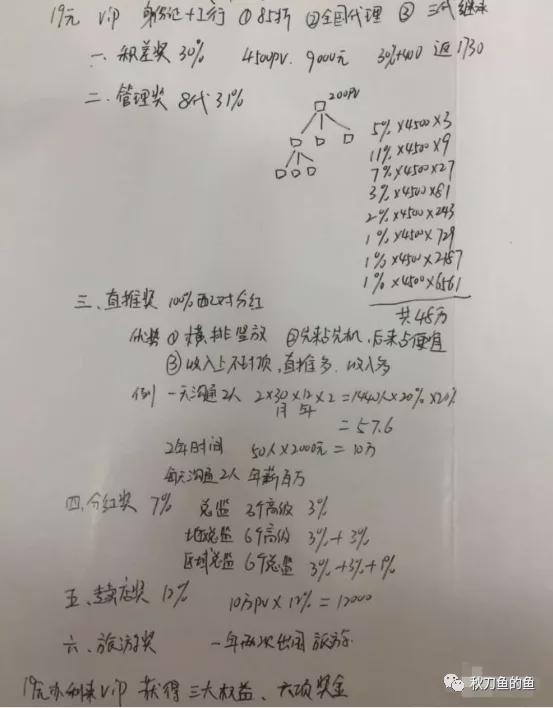 19元 vip 身份证+工行 ①85折 ②全国代理 ③三代继承
一、积差奖 30% 4500pv. 9000元 30%+400 返1730
二、管理奖 8代31%
200PV
5%×4500×3
11%×4500×9
7%×4500×27
3%×4500×81
2%×4500×243
1%×4500×729
1%×4500×2187
1%×4500×6561
共48万
三、直推奖 100%配对分红
优势 ①横排竖放 ②先来占先机，后来占便宜
③收入上不封顶，直推多，收入多
例 一天沟通2人 2×30×12×2=1440人×20%×20%
月 年
=57.6
2年时间 50人×2000元=10万
每天沟通2人 年薪百万
四、分红奖 7% 总监 3个高级 3%
地区总监 6个高级 3%+3%
区域总监 6个总监 3%+3%+1%
五、专卖店奖 12% 10万PV×12%=12000
六、旅游奖 一年两次出国旅游
19元办 vip 获得三大权益、六项奖金
秋刀鱼的鱼